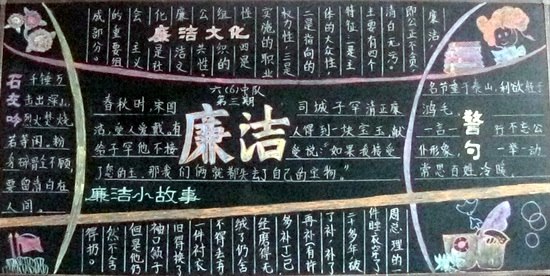 廉洁文化
廉洁，
即公正不贪，
清白无污，
主要有四个
特征：一是主
体的大众性，
二是指向的
权力性，三是
实施的职业
性，四是
组织的
公共性。
廉洁文
化是社
会主义
的重要组
成部分。
石灰吟
千锤万
击出深山，
烈火焚烧
若等闲。粉
身碎骨全不顾，
要留清白在
人间。
六(6)中队
第三期
廉洁
春秋时，宋国 司城子罕清正廉
洁，受人爱戴。有 人得到一块宝玉献
给子罕他不接 受说：“如果我接受
了您的玉，那我们俩就都失去了自己的宝物。”
廉洁小故事
警句
名节重于泰山，利欲轻于
鸿毛。
一言一行不忘公
仆形象，一举一动
常思百姓冷暖。
周总理的
一件睡衣穿了
千多年破
了补，补了
再补（有许
多补丁）已
经磨得无
绒了仍舍
不得去。有
一件衬衣
旧得换了
袖口领子
但是他仍
然不舍
得扔。